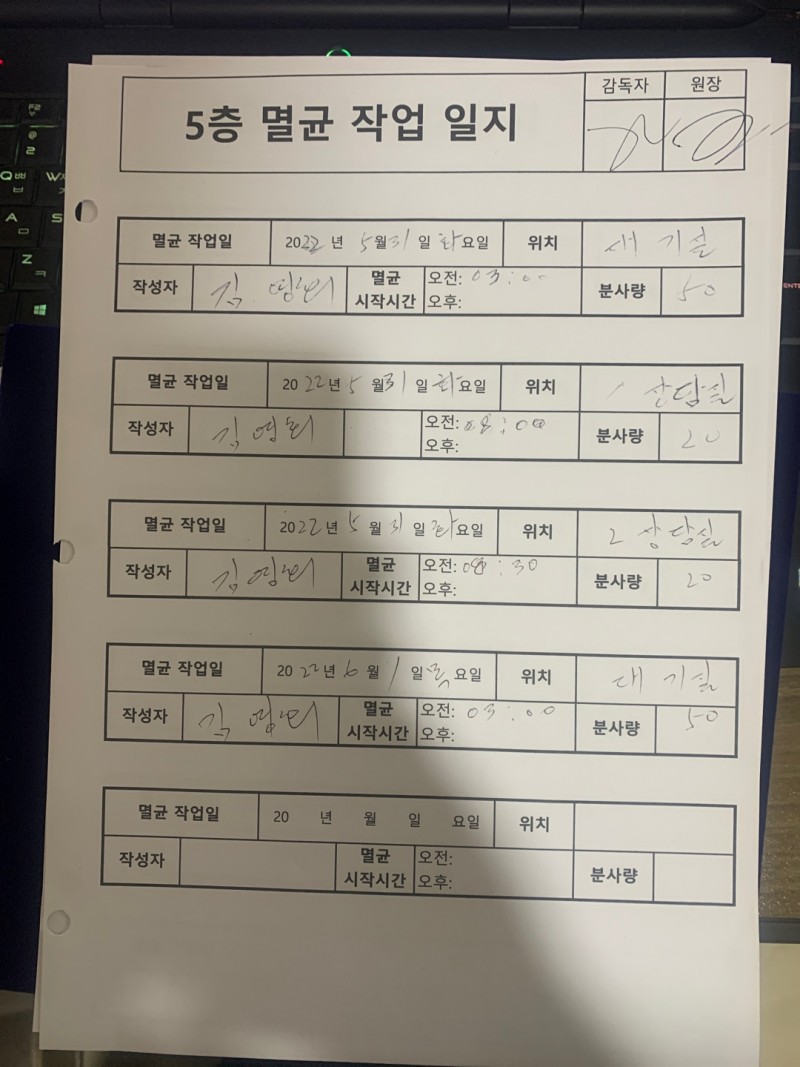 감독자 원장
5층 멸균 작업 일지
멸균 작업일 2022 년 5월 31 일 화요일 위치 대 기실
작성자 김 영희 멸균 시작시간 오전: 03:00 오후: 분사량 50
멸균 작업일 2022년 5 월 31 일 화요일 위치 1 상담실
작성자 김 영희 오전: 08:00 오후: 분사량 20
멸균 작업일 2022년 5 월 31 일 화요일 위치 2 상담실
작성자 김 영희 멸균 시작시간 오전: 08:30 오후: 분사량 20
멸균 작업일 2022년 6 월 1 일 요일 위치 대 기실
작성자 김 영희 멸균 시작시간 오전: 03:00 오후: 분사량 50
멸균 작업일 20 년 월 일 요일 위치
작성자 멸균 시작시간 오전: 오후: 분사량